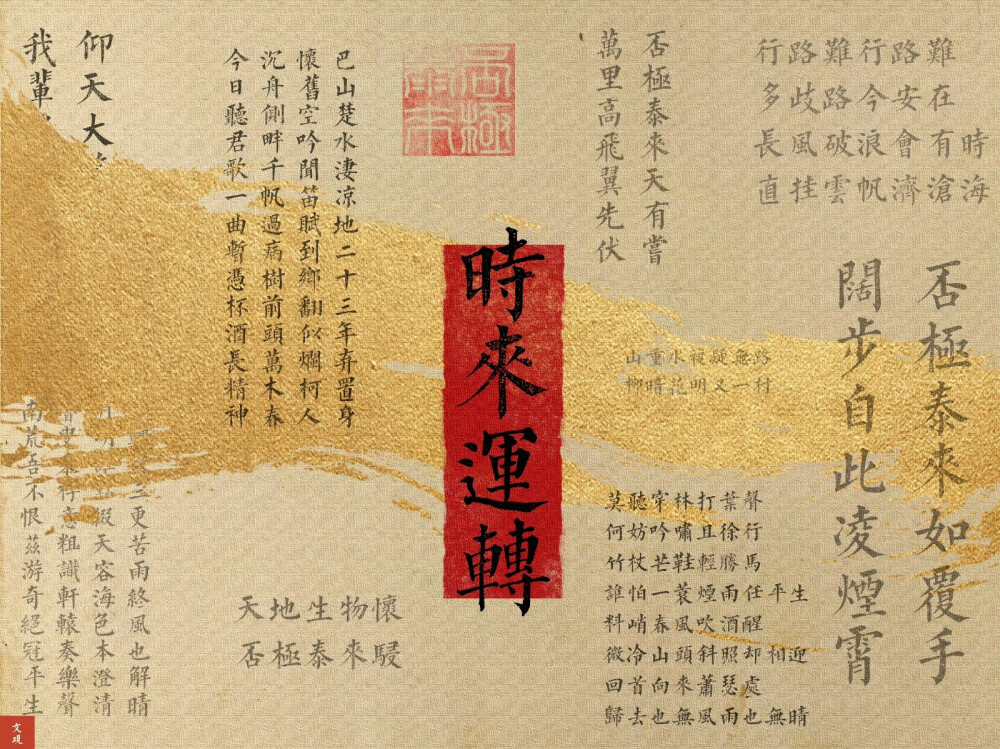 行路難行路難
多歧路今安在
長風破浪會有時
直挂雲帆濟滄海
否極泰來天有嘗
萬里高飛翼先伏
否極泰來
巴山楚水淒凉地二十三年弃置身
懷舊空吟聞笛賦到鄉翻似爛柯人
沉舟側畔千帆過病樹前頭萬木春
今日聽君歌一曲暫憑杯酒長精神
仰天大
我輩
否極泰來如覆手
闊步自此凌煙霄
時來運轉
山重水複疑無路
柳暗花明又村
莫聽穿林打葉聲
何妨吟嘯且徐行
竹杖芒鞋輕勝馬
誰怕一蓑煙雨任平生
料峭春風吹酒醒
微冷山頭斜照却相迎
回首向來蕭瑟處
歸去也無風雨也無晴
天地生物懷
否極泰來駸
三更苦雨終風也解晴
綴天容海色本澄清
意粗識軒轅奏樂聲
南荒吾不恨茲游奇絕冠平生
文覌